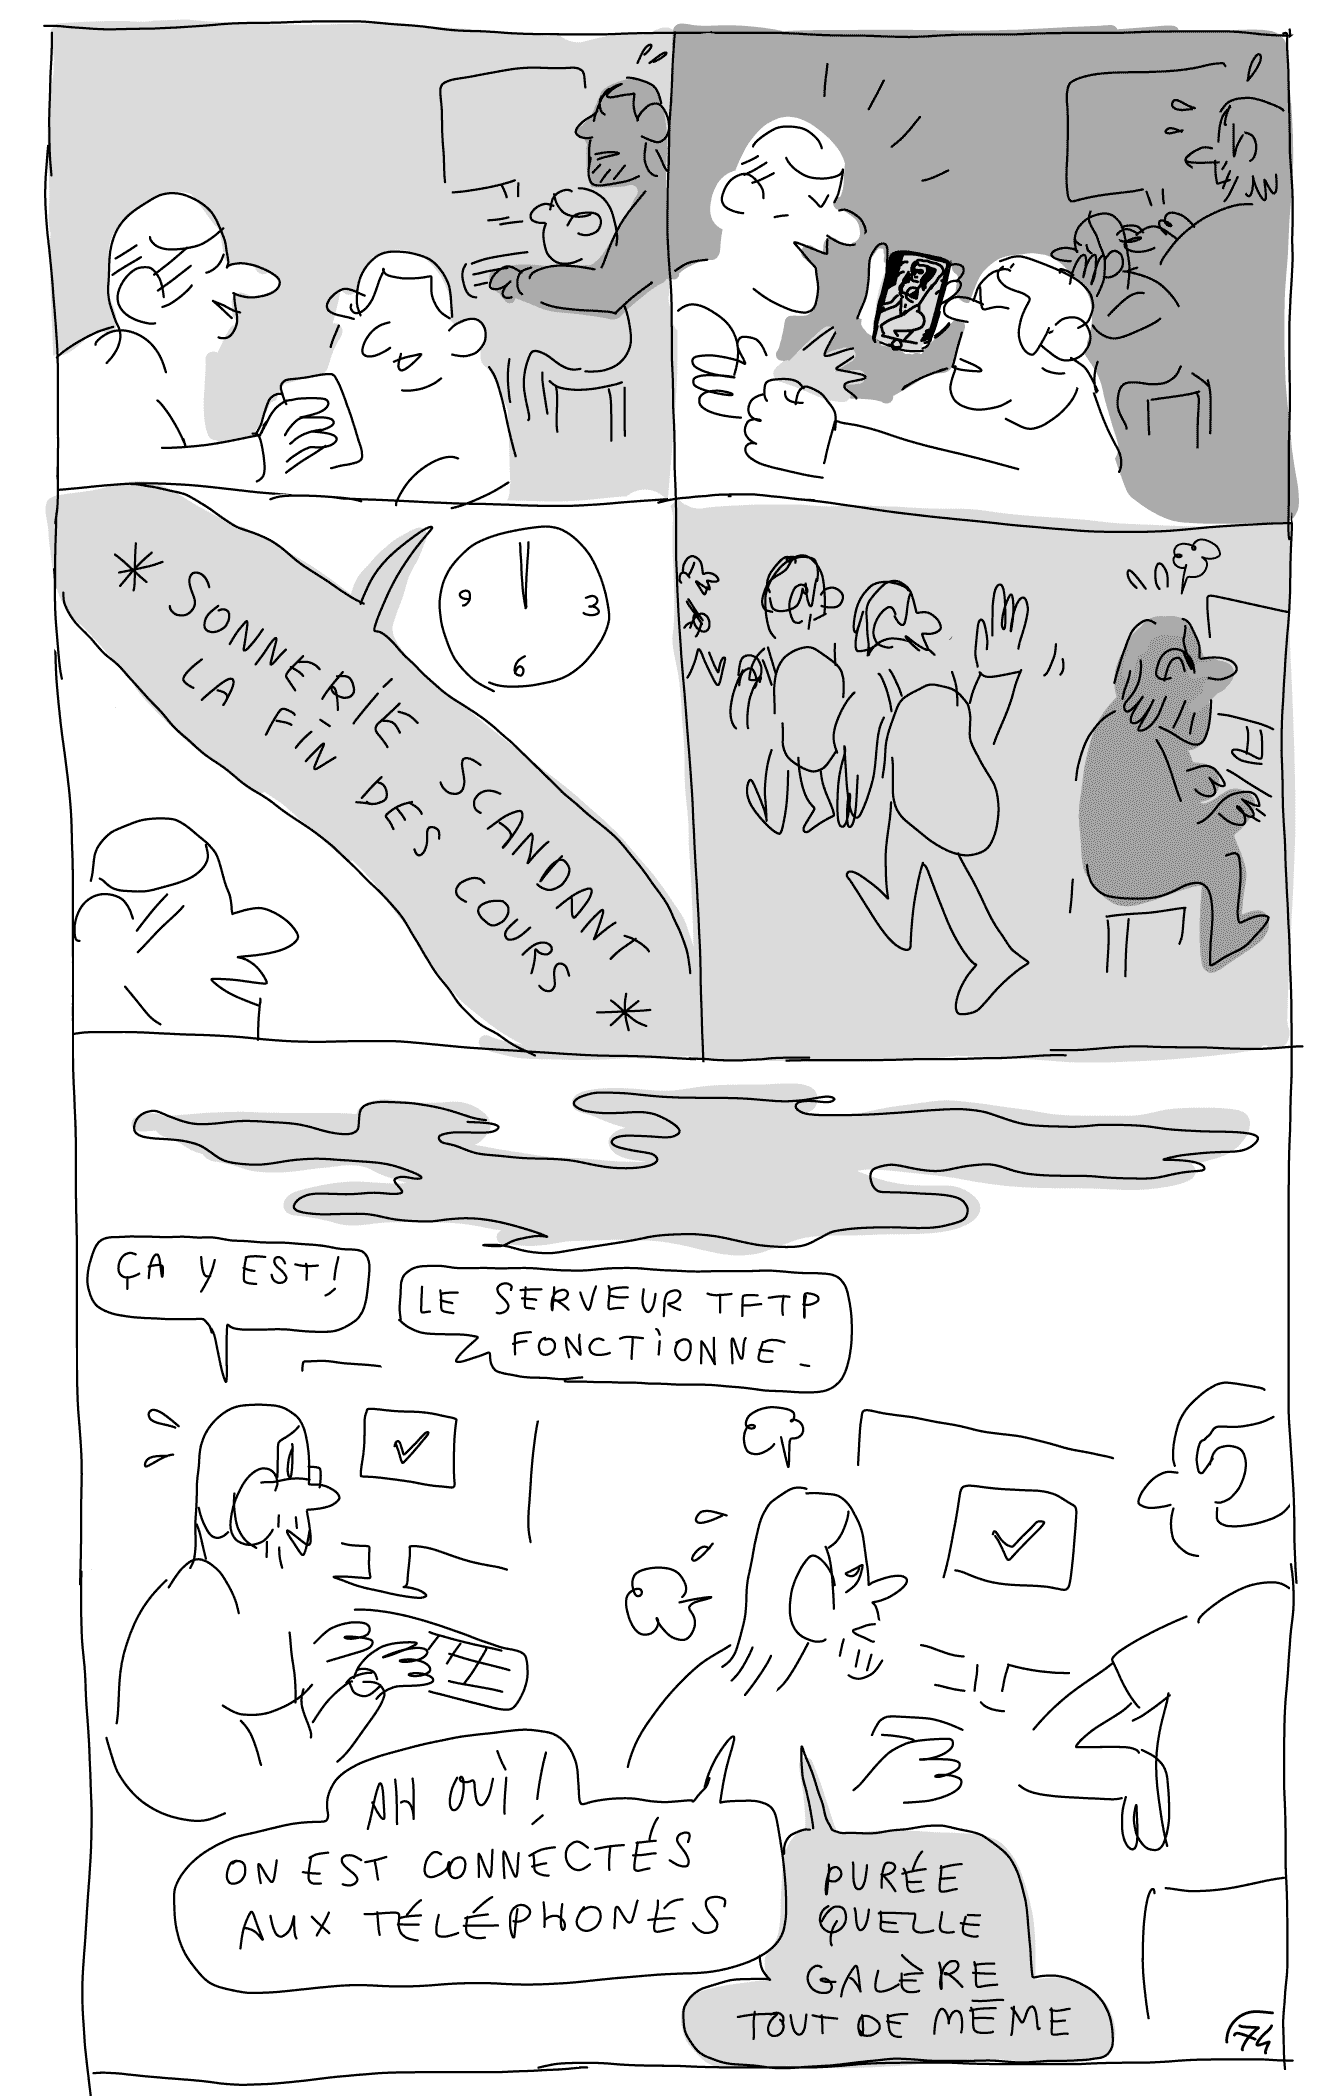 * SONNERIE SCANDANT
LA FIN DES COURS *
9 3
6
ÇA Y EST!
LE SERVEUR TFTP
FONCTIONNE.
AH OUI!
ON EST CONNECTÉS
AUX TÉLÉPHONES
PURÉE
QUELLE
GALÈRE
TOUT DE MÊME
74